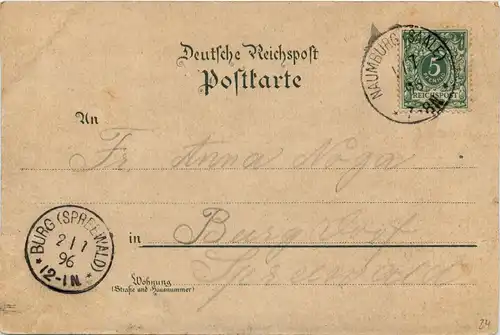 Deutsche Reichspost
Postkarte
NAUMBURG (SAALE)
5
REICHSPOST
An
Fr. Anna Noga
in Burg Dorf
Spreewald
BURG (SPREEWALD)
2/1
96
* 12-1N *
Wohnung
(Straße und Hausnummer)
24